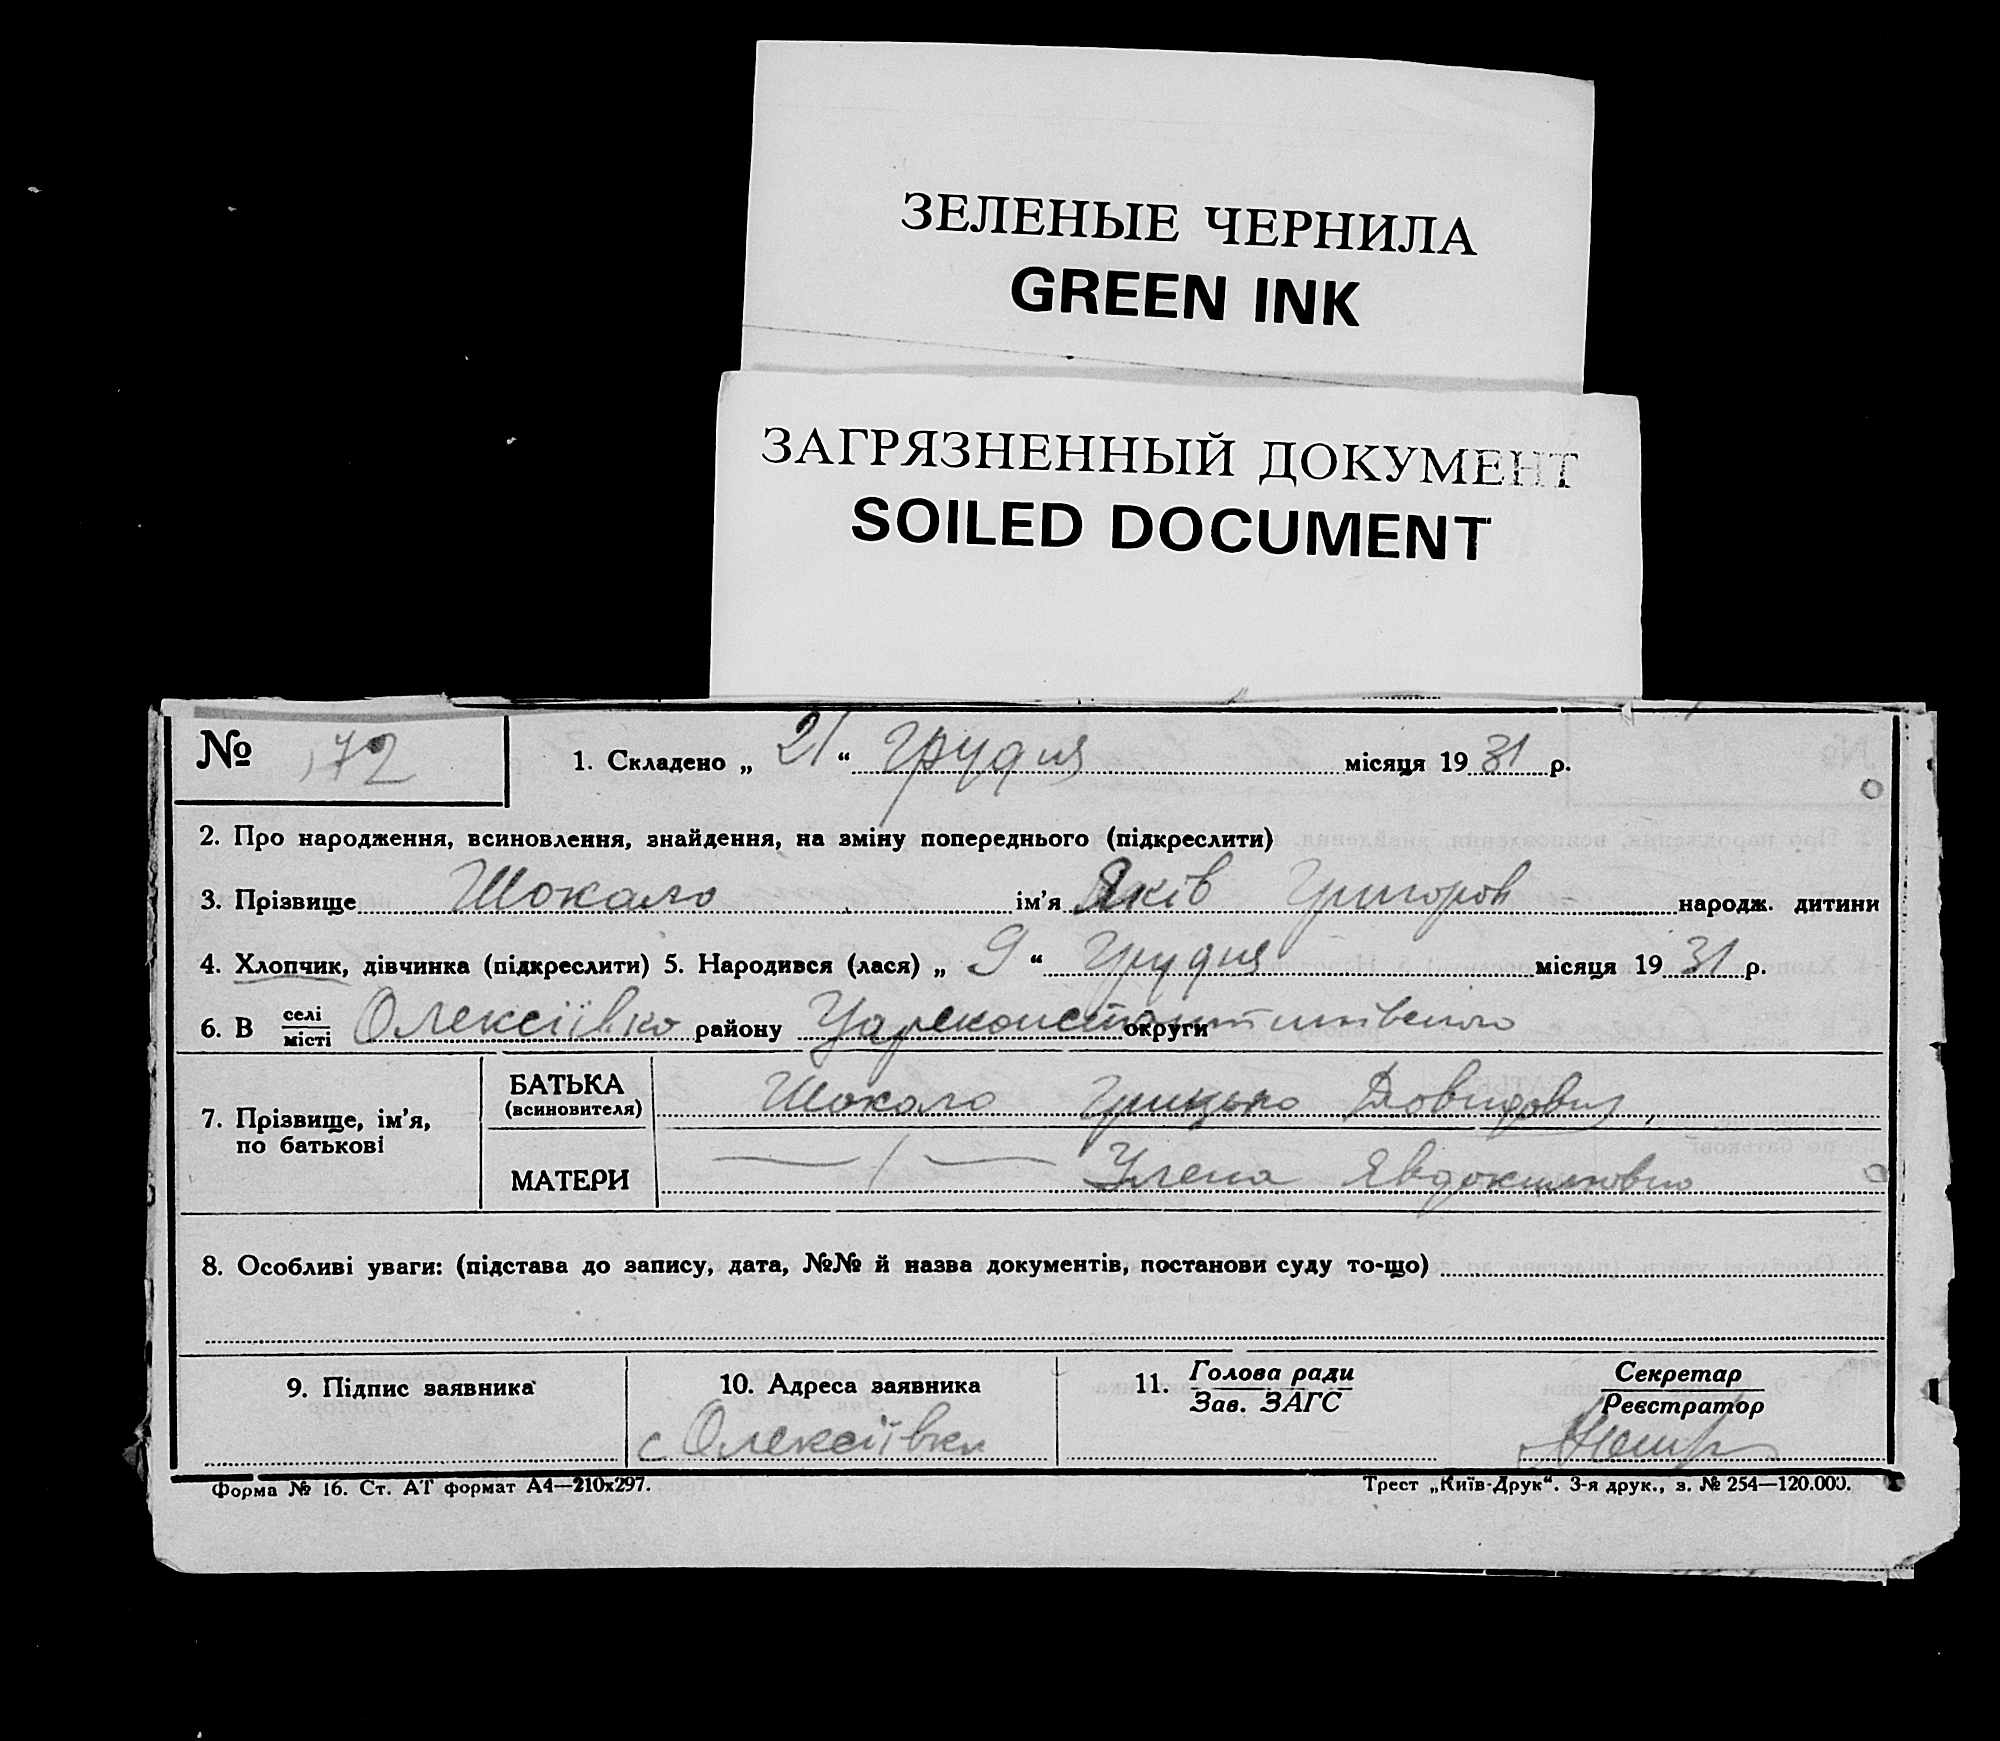 ЗЕЛЕНЫЕ ЧЕРНИЛА
GREEN INK
ЗАГРЯЗНЕННЫЙ ДОКУМЕНТ
SOILED DOCUMENT
№ 172 1. Складено „ 21 “ Грудня місяця 19 31 р.
2. Про народження, всиновлення, знайдення, на зміну попереднього (підкреслити)
3. Прізвище Шокало ім'я Яків Григоров народж. дитини
4. Хлопчик, дівчинка (підкреслити) 5. Народився (лася) „ 9 “ Грудня місяця 19 31 р.
6. В селі / місті Олексіївка району Цареконстантинівського округи
7. Прізвище, ім'я, по батькові
БАТЬКА (всиновителя) Шокало Грицько Довидович
МАТЕРИ —/— Улена Явдокимовна
8. Особливі уваги: (підстава до запису, дата, №№ й назва документів, постанови суду то-що)
9. Підпис заявника
10. Адреса заявника
с Олексіївки
11. Голова ради / Зав. ЗАГС
Секретар / Реєстратор
Форма № 16. Ст. АТ формат А4—210х297.
Трест „Київ-Друк“. 3-я друк., з. № 254—120.000.